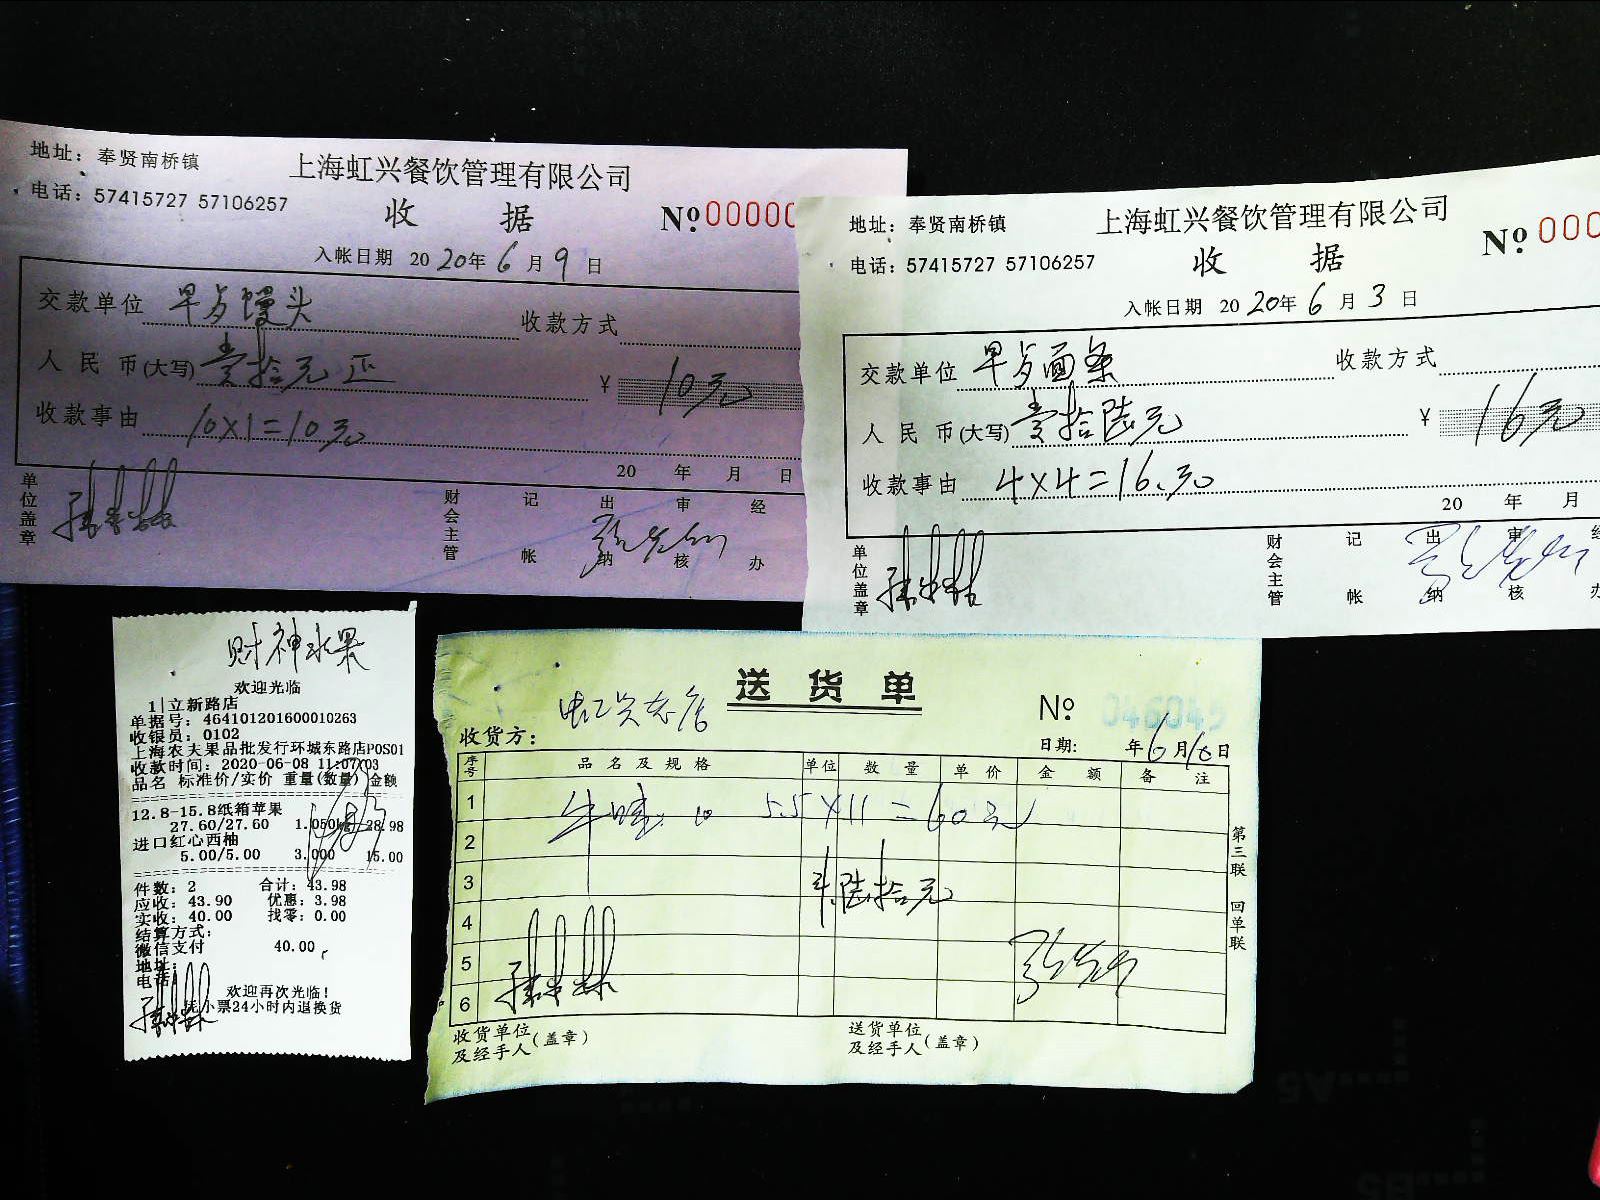 地址：奉贤南桥镇
上海虹兴餐饮管理有限公司
电话：57415727 57106257
收 据
№ 00000
入帐日期 2020年6月9日
交款单位 早点馒头 收款方式
人民币(大写) 壹拾元正 ¥ 10元
收款事由 10×1=10元
20 年 月 日
单位盖章 财会主管 记帐 出纳 审核 经办
地址：奉贤南桥镇
上海虹兴餐饮管理有限公司
电话：57415727 57106257
收 据
№ 000
入帐日期 2020年6月3日
交款单位 早点面条 收款方式
人民币(大写) 壹拾陆元 ¥ 16元
收款事由 4×4=16元
20 年 月
单位盖章 财会主管 记帐 出纳 审核
财神水果
欢迎光临
1|立新路店
单据号：464101201600010263
收银员：0102
上海农夫果品批发行环城东路店POS01
收款时间：2020-06-08 11:07:03
品名 标准价/实价 重量(数量) 金额
12.8-15.8纸箱苹果
27.60/27.60 1.050kg 28.98
进口红心西柚
5.00/5.00 3.000 15.00
件数：2 合计：43.98
应收：43.90 优惠：3.98
实收：40.00 找零：0.00
结算方式：
微信支付 40.00
地址：
电话：
欢迎再次光临！
凭小票24小时内退换货
送货单
№ 046045
收货方：
日期： 年6月10日
序号 品名及规格 单位 数量 单价 金额 备注
1 牛蛙 5.5×11=60元
2
3 陆拾元
4
5
6
第三联 回单联
收货单位及经手人(盖章)
送货单位及经手人(盖章)